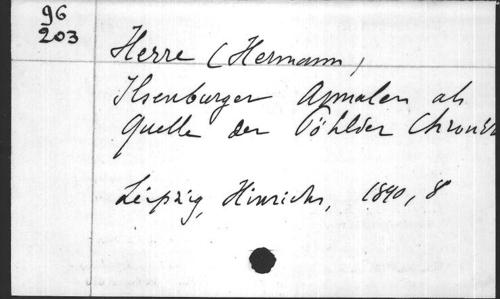 96
203
Herre (Hermann)
Ilsenburger Annalen als
Quelle der Pöhlder Chronik
Leipzig, Hinrichs, 1890, 8